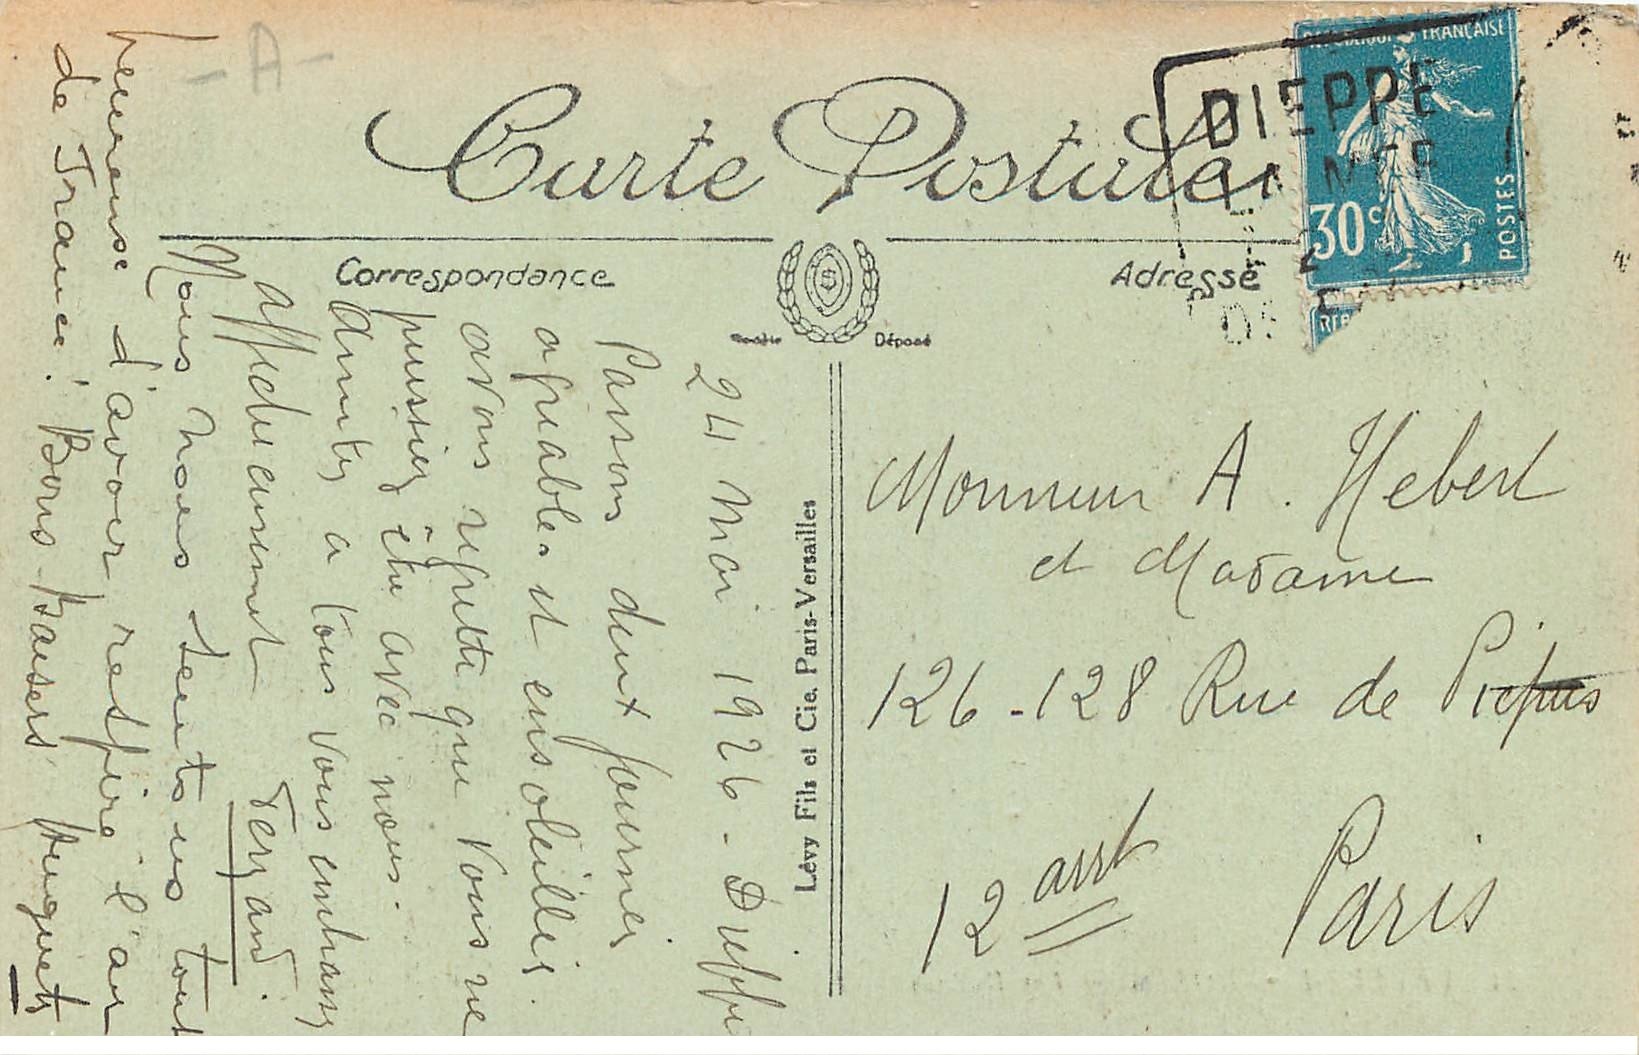 -A-
Carte Postale
Correspondance
Adresse
Modèle Déposé
RÉPUBLIQUE FRANÇAISE
30c
POSTES
DIEPPE
Lévy Fils et Cie, Paris-Versailles
24 Mai 1926 - Dieppe
Passons deux journées
agréables et ensoleillées.
avons regretté que vous ne
pussiez être avec nous.
Amitiés à tous vous embrasse
affectueusement
Fernand.
Nous nous sentons tout
heureuse d'avoir respiré l'air
de France! Bons Baisers
Monsieur A. Hebert
et Madame
126-128 Rue de Picpus
12 arrt Paris